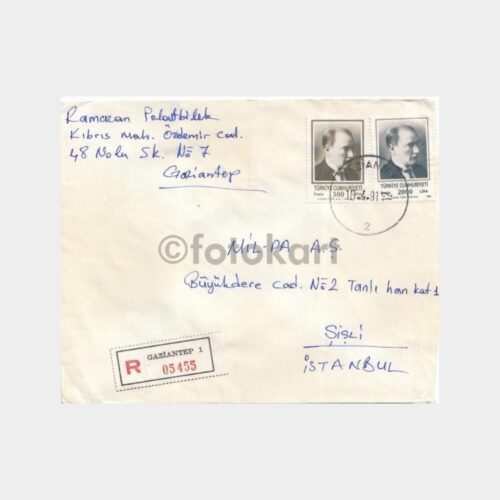 Ramazan Polatbilek
Kıbrıs Mah. Özdemir Cad.
48 Nolu Sk. No 7
Gaziantep
TÜRKİYE CUMHURİYETİ
500
TÜRKİYE CUMHURİYETİ
2000 LİRA
10-4-91
2
©fotokart
MİL-PA A.Ş.
Büyükdere Cad. No 2 Tanlı han kat 1
Şişli
İSTANBUL
GAZİANTEP 1
R 05455